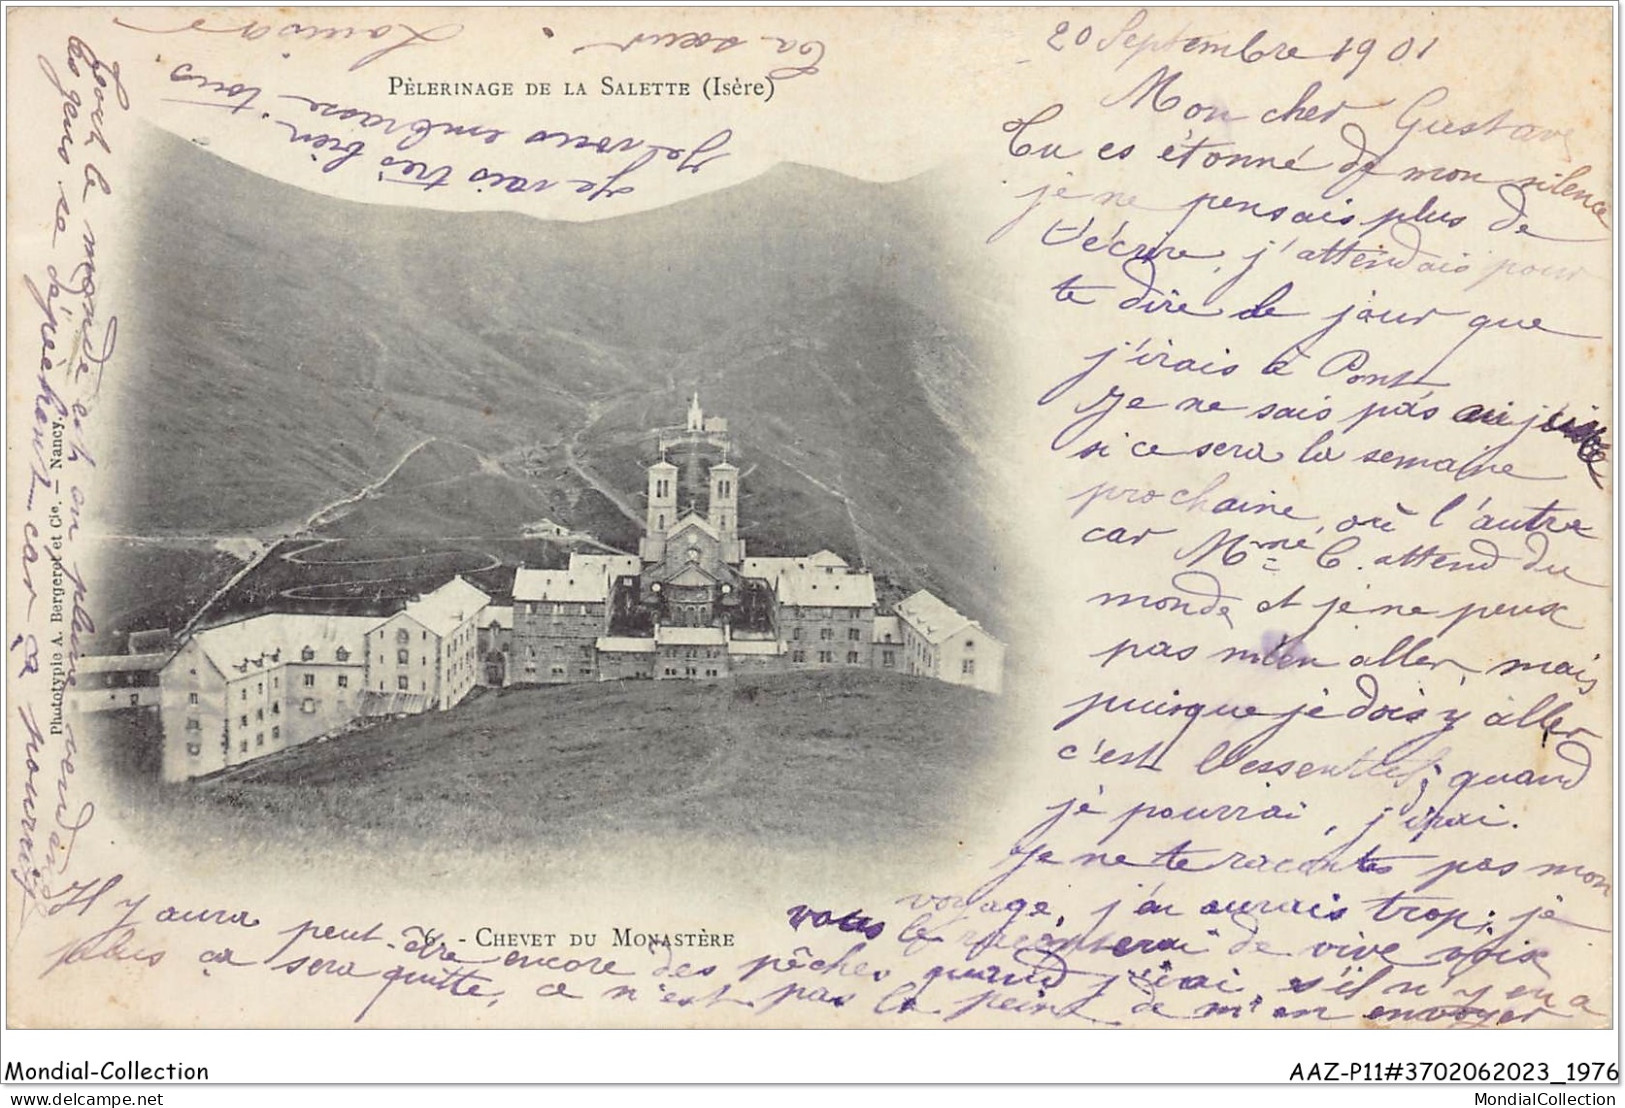 20 Septembre 1901
Mon cher Gustave
Tu es étonné de mon silence
je ne pensais plus de
t'écrire, j'attendais pour
te dire le jour que
j'irais à Pont
Je ne sais pas au juste
si ce sera la semaine
prochaine, où l'autre
car Mme C. attend du
monde et je ne peux
pas m'en aller, mais
puisque je dois y aller
c'est l'essentiel, quand
je pourrai, j'irai.
Je ne te racontes pas mon
voyage, j'en aurais trop; je
vous le raconterai de vive voix
Il y aura peut-être encore des pêches quand j'irai, s'il n'y en a
plus ça sera quitte, ce n'est pas la peine de m'en envoyer
Tout le monde est en plein vendange
les gens se dépêchent car ça pourrit
Je vais très bien.
Je vous embrasse tous
Ta sœur
Louise
PÈLERINAGE DE LA SALETTE (Isère)
6. - CHEVET DU MONASTÈRE
Phototypie A. Bergeret et Cie. - Nancy.
Mondial-Collection
AAZ-P11#3702062023_1976
delcampe.net
MondialCollection